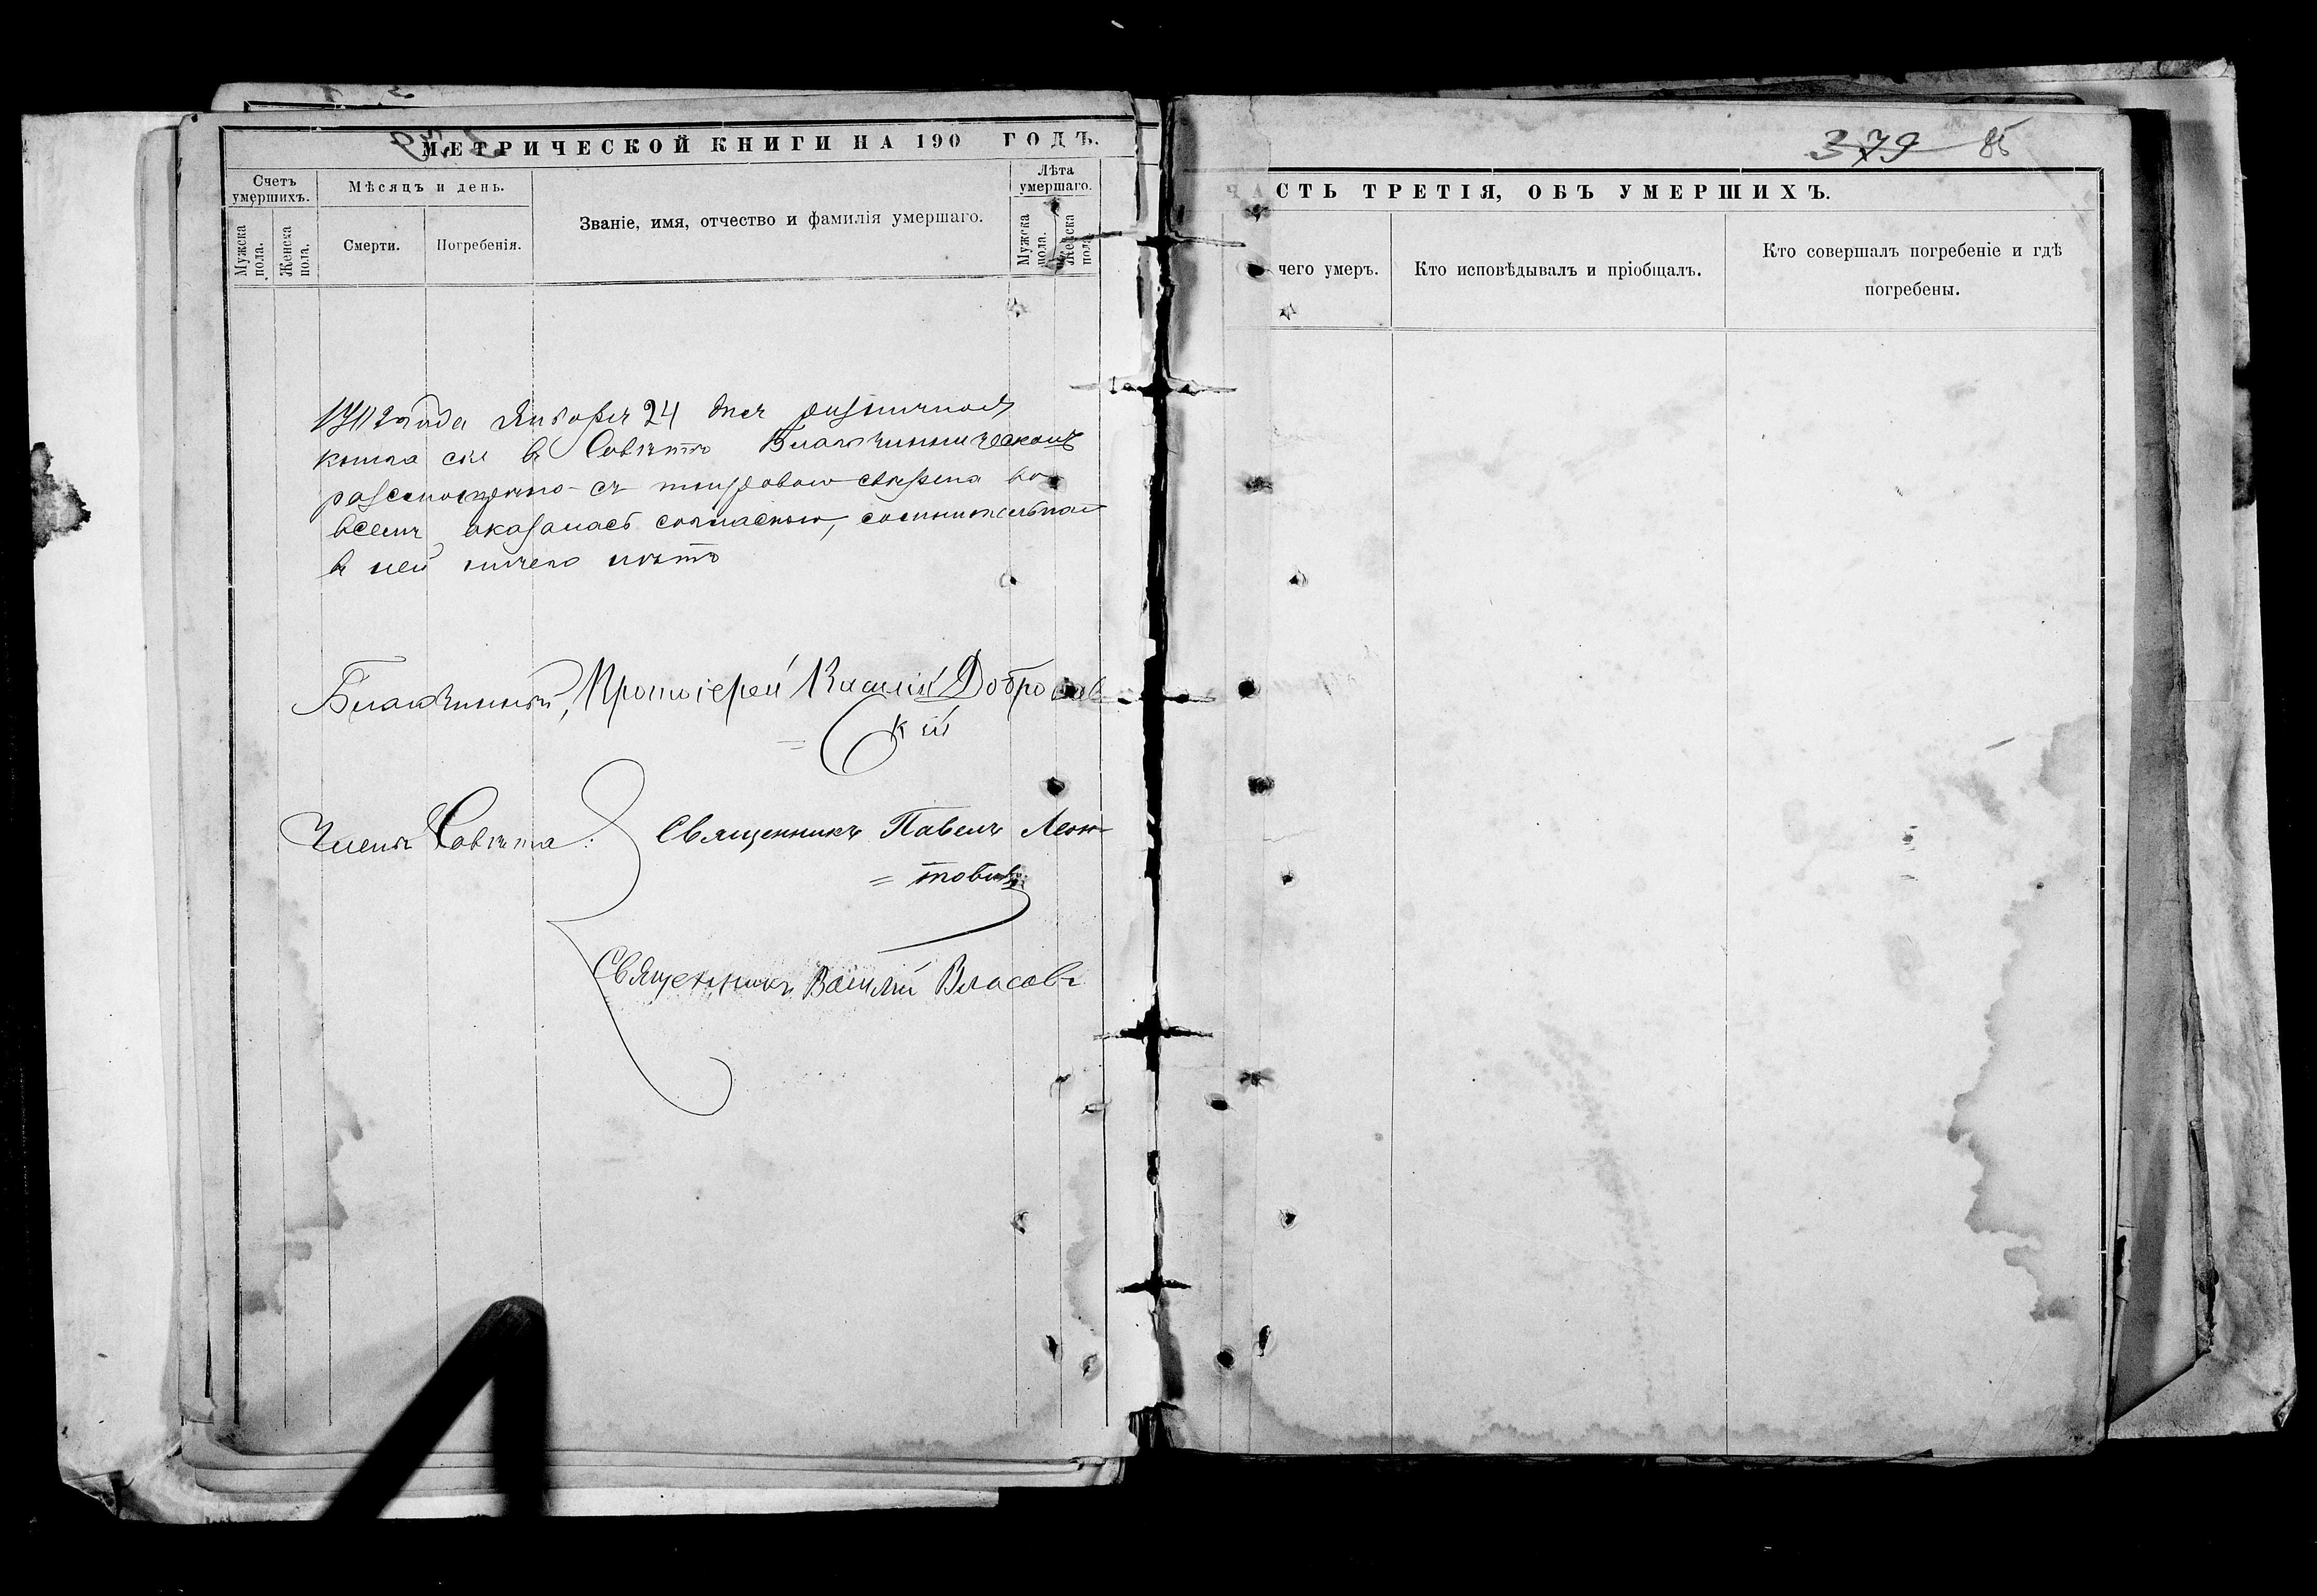 МЕТРИЧЕСКОЙ КНИГИ НА 190 ГОДЪ.
Счетъ умершихъ.
Мужеска пола.
Женска пола.
Мѣсяцъ и день.
Смерти.
Погребенія.
Званіе, имя, отчество и фамилія умершаго.
Лѣта умершаго.
Мужеска пола.
Женска пола.
года Января 24 дня ризничная
книга сія въ Совѣтѣ Благочинническомъ
разсмотрѣна съ шнуровою свѣрена во
всемъ оказалась согласною, сомнительнаго
въ ней ничего нѣтъ
Благочинный, Протоіерей Василій
кій
Члены Совѣта: Священникъ Павелъ Леон-
= товичъ
Священникъ Василій Власовъ
379 85
ЧАСТЬ ТРЕТІЯ, ОБЪ УМЕРШИХЪ.
чего умеръ.
Кто исповѣдывалъ и пріобщалъ.
Кто совершалъ погребеніе и гдѣ
погребены.